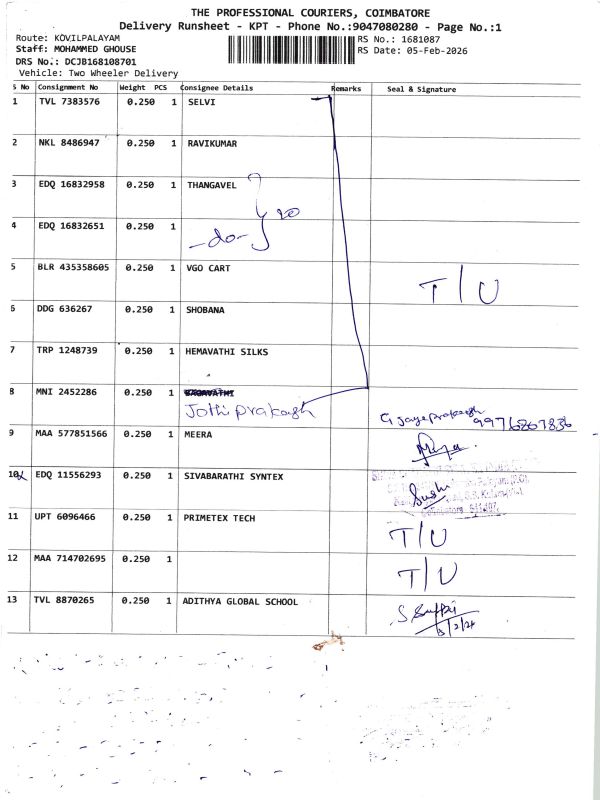 THE PROFESSIONAL COURIERS, COIMBATORE
Delivery Runsheet - KPT - Phone No.:9047080280 - Page No.:1
Route: KOVILPALAYAM
RS No.: 1681087
Staff: MOHAMMED GHOUSE
RS Date: 05-Feb-2026
DRS No.: DCJB168108701
Vehicle: Two Wheeler Delivery
S No Consignment No Weight PCS Consignee Details Remarks Seal & Signature
1 TVL 7383576 0.250 1 SELVI
2 NKL 8486947 0.250 1 RAVIKUMAR
3 EDQ 16832958 0.250 1 THANGAVEL
4 EDQ 16832651 0.250 1
-do-
5 BLR 435358605 0.250 1 VGO CART
T/U
6 DDG 636267 0.250 1 SHOBANA
7 TRP 1248739 0.250 1 HEMAVATHI SILKS
8 MNI 2452286 0.250 1
Jothi prakash
G Jayaprakash
9976267836
9 MAA 577851566 0.250 1 MEERA
10 EDQ 11556293 0.250 1 SIVABARATHI SYNTEX
Sushi
11 UPT 6096466 0.250 1 PRIMETEX TECH
T/U
12 MAA 714702695 0.250 1
T/U
13 TVL 8870265 0.250 1 ADITHYA GLOBAL SCHOOL